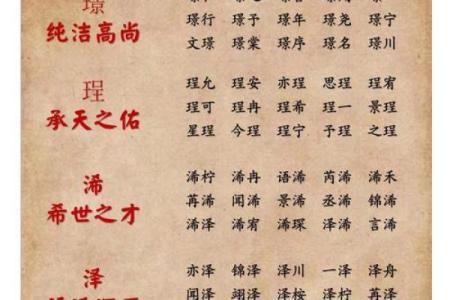 璟
纯洁高尚
璟行 璟予 璟年 璟尧 璟宁
文璟 璟棠 璟序 璟名 璟川
珵
承天之佑
珵允 珵安 亦珵 思珵 珵宥
珵可 珵冉 珵希 珵一 景珵
星珵 今珵 珵宁 予珵 之珵
浠
希世之才
浠柠 浠冉 语浠 芮浠 浠禾
苒浠 闻浠 景浠 丞浠 锦浠
浠泽 浠宥 浠琛 泽浠 言浠
泽
亦泽 锦泽 泽川 一泽 泽舟
闻泽 翊泽 泽桉 泽柠 苒泽